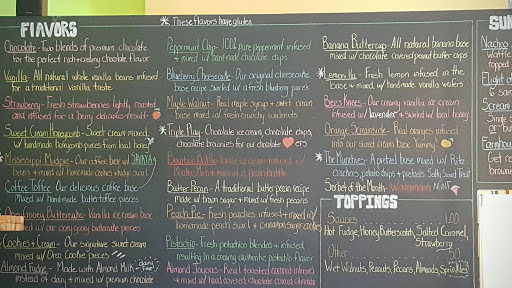 FLAVORS
* These flavors have gluten
Chocolate - Two blends of premium chocolate
for the perfect rich + creamy chocolate flavor
Vanilla - All natural whole vanilla beans infused
for a traditional vanilla taste
Strawberry - Fresh strawberries lightly roasted
and infused for a berry delicious result
Sweet Cream Honeycomb - Sweet cream mixed
w/ handmade honeycomb pieces from local honey
* Mississippi Mudpie - Our coffee base w/
mixed w/ homemade cookies + fudge swirl
Coffee Toffee - Our delicious coffee base
mixed w/ handmade buttertoffee pieces
Ooey Gooey Buttercake - Vanilla ice cream base
w/ our ooey gooey buttercake pieces
* Cookies + Cream - Our signature sweet cream
mixed w/ Oreo Cookie pieces
Almond Fudge - Made with Almond Milk - dairy free
instead of dairy + mixed w/ premium chocolate
Peppermint Chip - 100% pure peppermint infused
+ mixed w/ hand made chocolate chips
Blueberry Cheesecake - Our original cheesecake
base recipe swirled w/ a fresh blueberry puree
Maple Walnut - Real maple syrup + sweet cream
base mixed w/ fresh crunchy walnuts
* Triple Play - Chocolate ice cream, chocolate chips,
chocolate brownies for our chocolate
Bourbon Butter
Butter Pecan - A traditional butter pecan recipe
made w/ brown sugar + mixed w/ fresh pecans
Peach Pie - Fresh peaches infused + mixed w/
homemade pencil swirl + cinnamon sugar cookies
Pistachio - Fresh pistachios blended + infused,
resulting in a creamy authentic pistachio flavor
Almond Joyous - Real toasted coconut infused
+ mixed w/ hand covered chocolate covered almonds
Banana Buttercup - All natural banana base
mixed w/ chocolate covered peanut butter cups
* Lemonilla - Fresh lemon infused in the
base + mixed w/ handmade vanilla wafers
Bees Knees - Our creamy vanilla ice cream
infused w/ lavender + swirled w/ local honey
Orange Screamsicle - Real oranges infused
into our sweet cream base. Yummy
* The Munchies - A pretzel base mixed w/ Ritz
crackers, potato chips + pretzels. Salty Sweet Treat
Sorbet of the Month - Watermelon Mint
TOPPINGS
Sauces 1.00
Hot Fudge, Honey Butterscotch, Salted Caramel,
Strawberry
Other .50
Wet Walnuts, Peanuts, Pecans, Almonds, Sprinkles
SUN
Nachos
Waffle
topped
Flight of
6 sam
Scream
Single s
or bu
Farmhou
Get re
browni